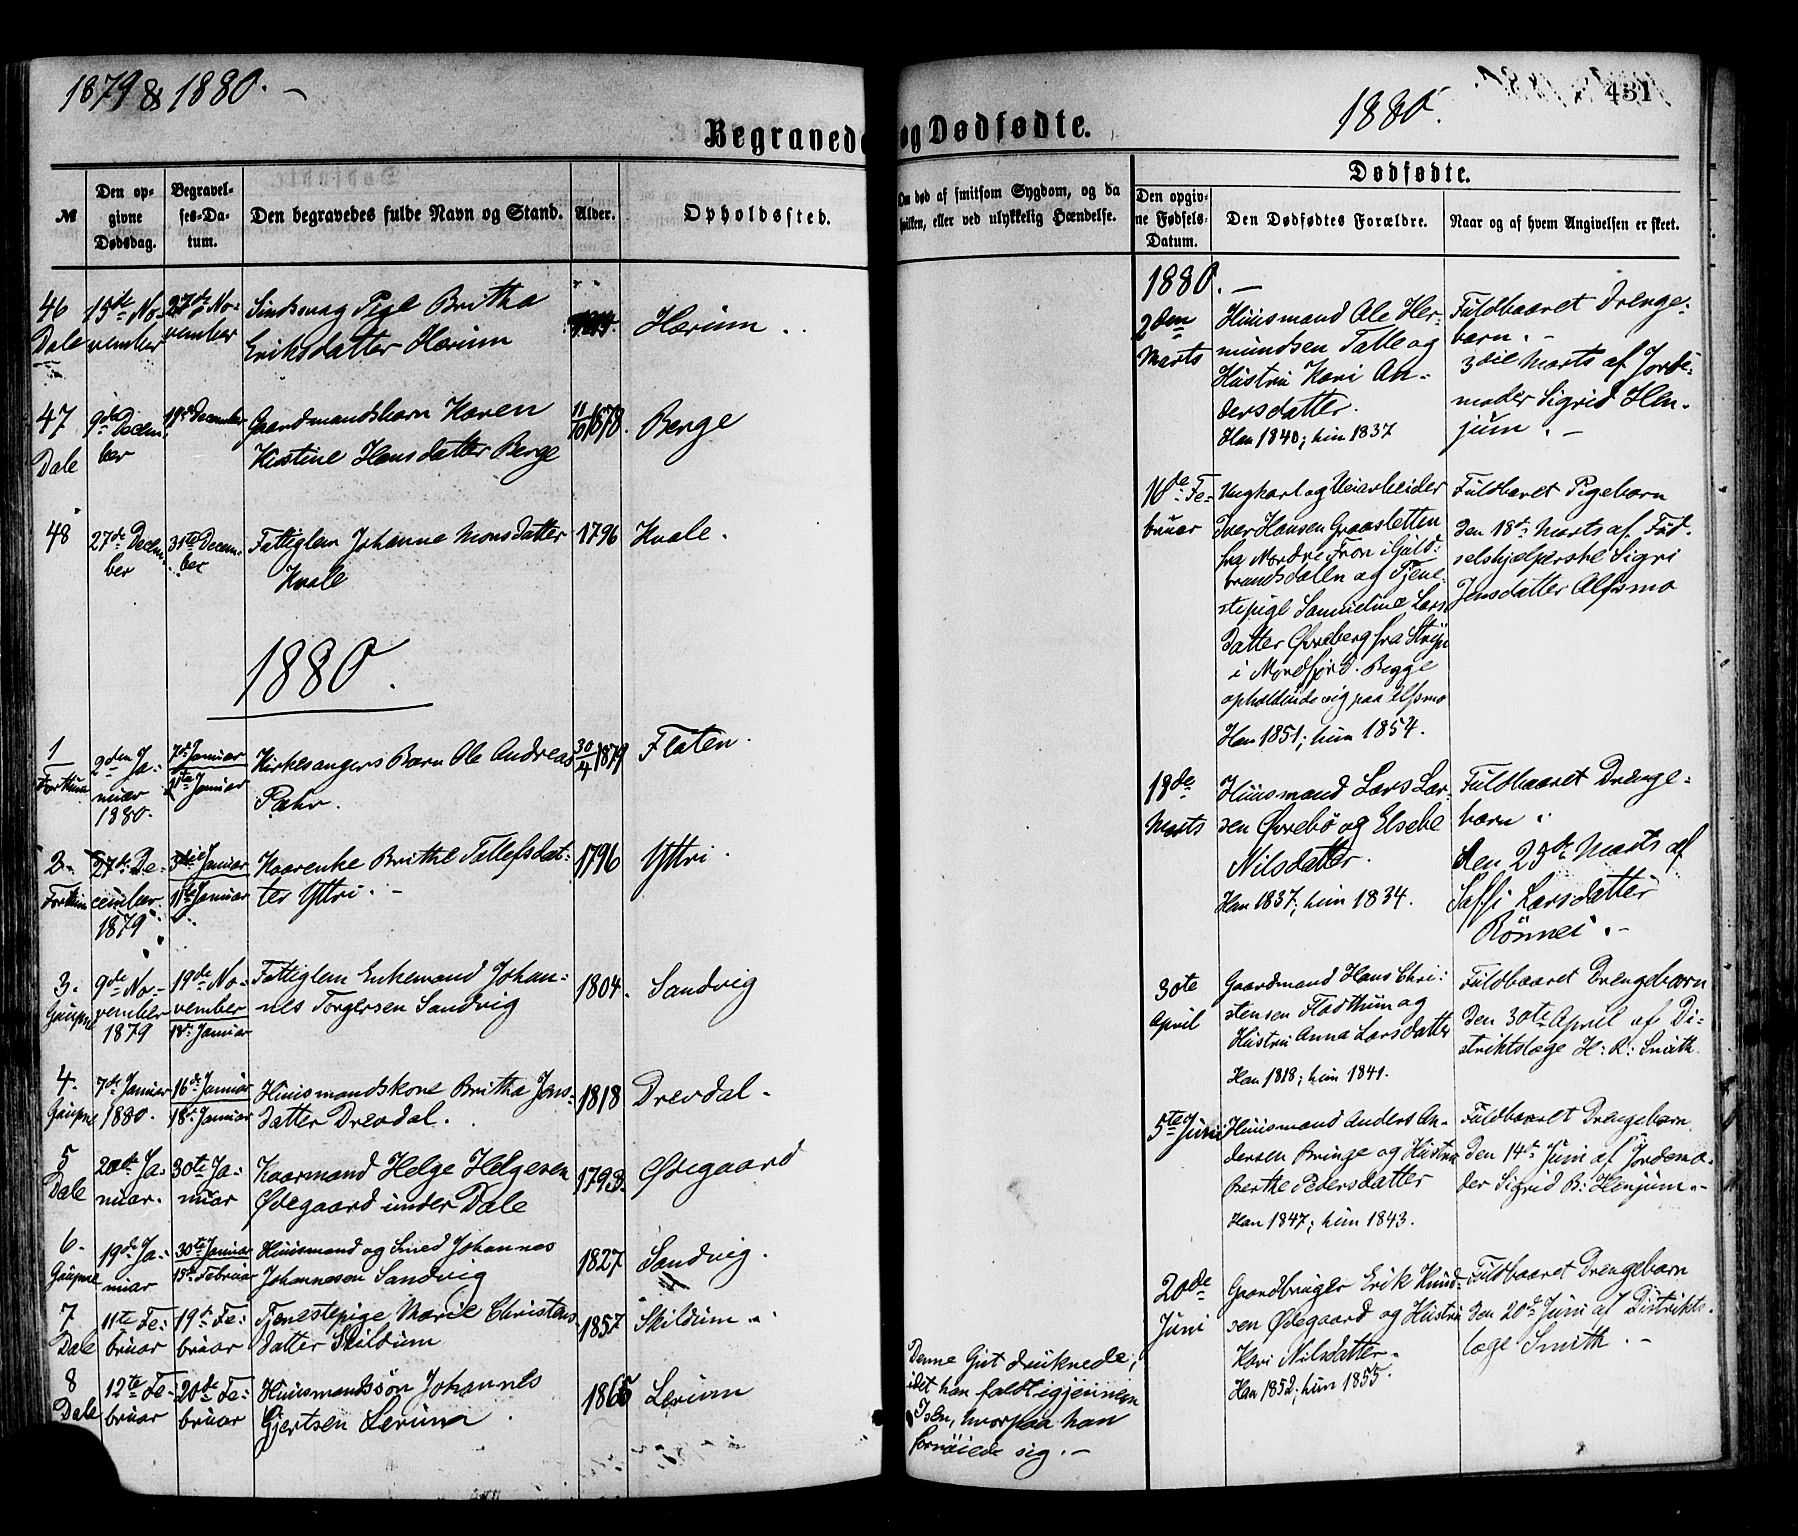 1879 & 1880.
Begravede
№
Den op-
givne
Dødsdag.
Begravel-
ses-Da-
tum.
Den begravedes fulde Navn og Stand.
Alder.
Opholdssted.
46
Dale
15de No-
vember
27de No-
vember
Sindssvag Pige Britha
Eriksdatter Hærum
Hærum
47
Dale
9de Decem-
ber
Gaardmandsbarn Karen
Kistine Hansdatter Berge
11/10 1878.
Berge
48
27de Decem-
ber
31te Decem-
ber
Fattiglem Johanna Monsdatter
Kvale
1796
Kvale.
1880.
1
Forthun
2den Ja-
nuar
1880.
7de Januar
11te Januar
Kirkesangers Barn Ole Andreas
Pæhr.
30/4 1879
Flaten.
2.
Forthun
27de De-
cember
1879
3die Januar
11te Januar
Kaarenke Brithe Tollefsdat-
ter Yttri.
1796
Yttri.
3.
Gaupne
9de No-
vember
1879
19de No-
vember
18de Januar
Fattiglem Enkemand Johan-
nes Torgersen Sandvig
1804.
Sandvig
4.
Gaupne
7de Januar
1880.
16de Januar
18de Januar
Huusmandskone Britha Jens-
datter Drevdal.
1818
Drevdal.
5
Dale
20de Ja-
nuar.
30te Ja-
nuar
Kaarmand Helge Helgesen
Ødegaard under Dale
1793.
Ødegaard
6.
Gaupne
19de Ja-
nuar
30te Januar
15de Februar
Huusmand og Smed Johannes
Johannesen Sandvig
1827
Sandvig.
7
Dale
11te Fe-
bruar
19de Fe-
bruar
Tjenestepige Marie Christens-
datter Skildum
1857
Skildum
8
Dale
12te Fe-
bruar
20de Fe-
bruar
Huusmandssøn Johannes
Gjertsen Lerum
1865
Lerum
431
1880.
og Dødfødte.
Om død af smitsom Sygdom, og da
hvilken, eller ved ulykkelig Hændelse.
Denne Gut druknede,
idet han faldt igjennem
Isen, hvorpaa han
fornøiede sig.
Dødfødte.
Den opgiv-
ne Fødsels-
Datum.
Den Dødfødtes Forældre.
Naar og af hvem Angivelsen er skeet.
1880.
2den
Marts
Huusmand Ole Her-
mundsen Talle og
Hustru Kari An-
dersdatter.
Han 1840; hun 1837
Fuldbaaret Drenge-
barn.
3die Marts af Jorde-
moder Sigrid Hen-
jum.
Fe-
bruar
Ungkarl og Veiarbeider
Iver Hansen Graasletten
fra Nordre Fron i Guld-
brandsdalen og Tjene-
stepige Samuline Lars-
datter Øvreberg fra Stryn
i Nordfjord. Begge
opholdende sig paa Alfsmo
Han 1851; hun 1854.
Fuldbaaret Pigebarn
den 18de Marts af Fød-
selshjelperske Sigri
Jensdatter Alfsmo
18de
Marts
Huusmand Lars Lar-
sen Øvrebø og Elsebe
Nilsdatter.
Han 1837; hun 1834.
Fuldbaaret Drenge-
barn.
den 23de Marts af
Saffi Larsdatter
Rønnei.
30te
April
Gaardmand Hans Chri-
stensen Flodthum og
Hustru Anna Larsdatter
Han 1818; hun 1841.
Fuldbaaret Drengebarn
den 30te April af Di-
striktslæge H: R: Smith.
5te Juni
Huusmand Anders An-
dersen Bringe og Hustru
Berthe Pedersdatter
Han 1847; hun 1843.
Fuldbaaret Drengebarn
den 14de Juni af Jordemo-
der Sigrid B: Henjum.
20de
Juni
Gaardbruger Erik Knud-
sen Ødegaard og Hustru
Kari Nilsdatter.
Han 1852; hun 1855.
Fuldbaaret Drengebarn
den 20de Juni af Distrikts-
læge Smith.